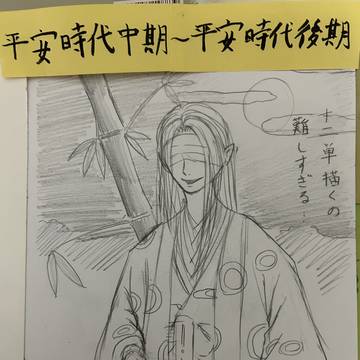 平安時代中期～平安時代後期
十二単描くの
難しすぎる…